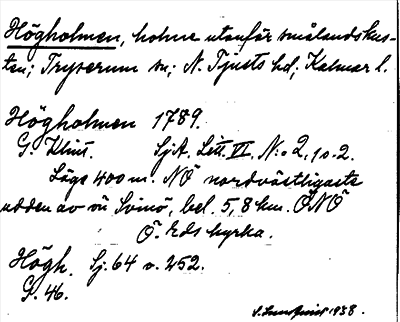 Högholmen, holme utanför smålandskus-
ten; Tryserum sn; N. Tjusts hd; Kalmar l.
Högholmen 1789.
G. Klint. Sj.A. Litt. VI, N:o 2, 1 o. 2.
Läge 400 m. NÖ nordvästligaste
udden av ön Svinö, bel. 5,8 km. ÖNÖ
Ö. Eds kyrka.
Högh. Sj. 64 o. 252.
G. 46.
1938.